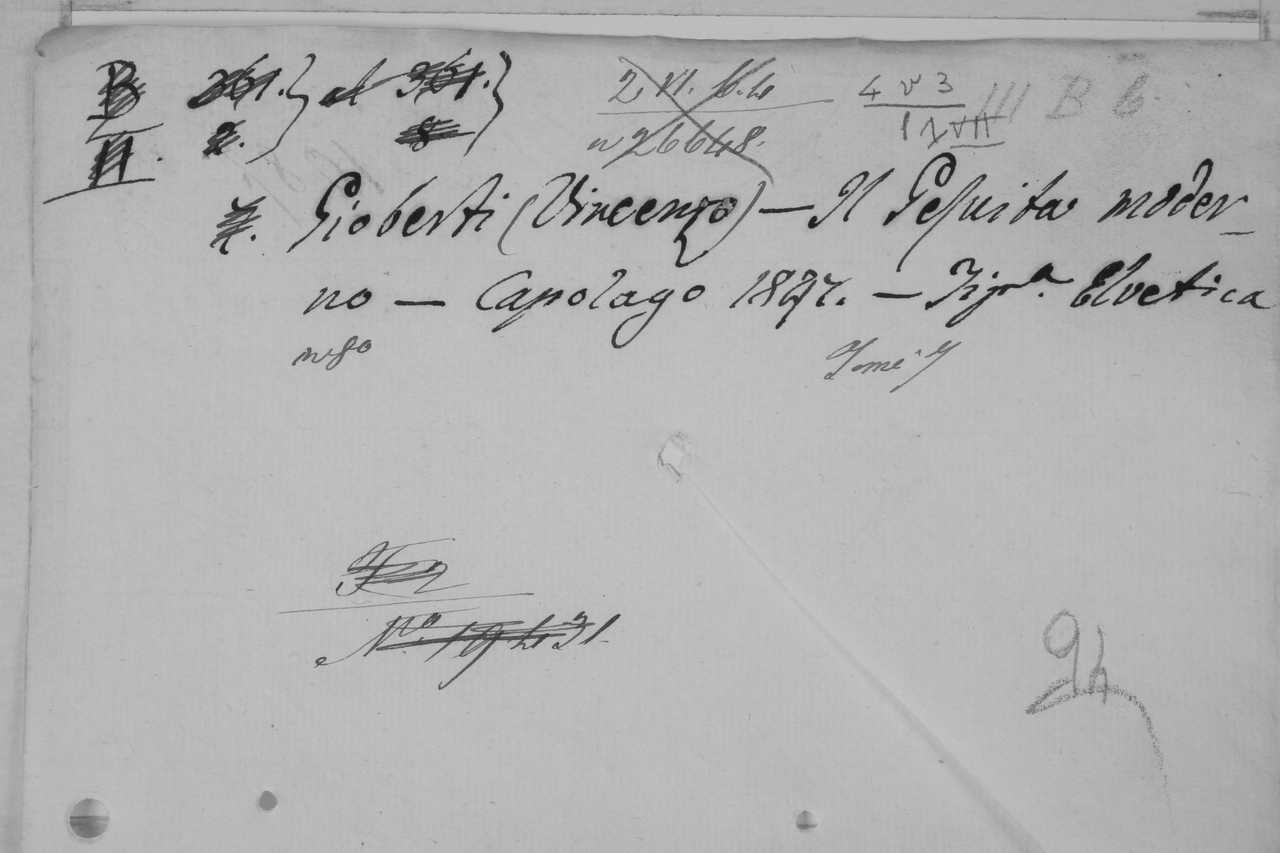 B 361. al 361.
II. 2. 8
2 VI. 16. 4
n 26648.
4 V 3
1 2 VII
III B 6.
Gioberti (Vincenzo) — Il Gesuita moder-
no — Capolago 1847. — Tipª. Elvetica
in 8º Tomi 7
Nº. 19431
94